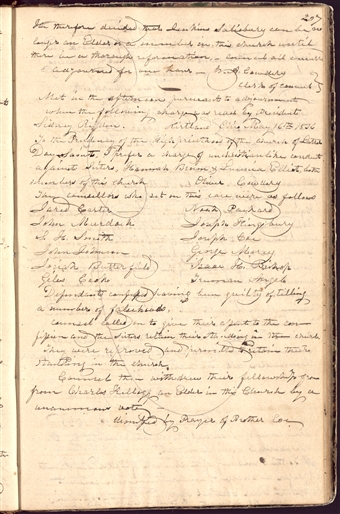 207
It therefore decided that Jenkins Salisbury can be no
longer an Elder or a member in this church until
there be a thorough reformation. council
adjourned for one hour W. A. Cowdery
Clerk of council
Met in the afternoon pursuant to adjournment
when the following charge was read by President
Sidney Rigdon. Kirtland Ohio May 16th 1836
To the Presidency of the High priesthood of the Church of Latter
Day Saints, I prefer a charge of unchristian like conduct
against Sisters, Hannah Brown & Lucena Elliot, both
members of this church Oliver Cowdery
Twelve counsellors who set on this case were as follows
Jared Carter Noah Packard
John Murdock Joseph Kingsbury
S. H. Smith Joseph Coe
John Johnson George Morey
Josiah Butterfield Isaac H. Bishop
Giles Cook Truman Angel
Defendants confessed having been guilty of telling
a number of falsehoods.
Council called on to give their assent to the con-
fession and the Sisters retain their standing in the church
They were reproved and permitted to retain their
standing in the church.
Council then withdrew their fellowship
from Charles Kellogg an Elder in this Church by a
unanimous vote
dismissed by Prayer of Brother Coe